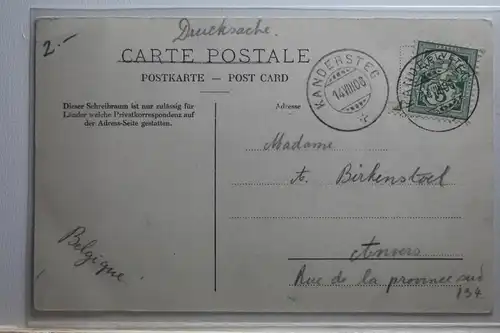 2.-
Drucksache.
CARTE POSTALE
POSTKARTE – POST CARD
Dieser Schreibraum ist nur zulässig für
Länder welche Privatkorrespondenz auf
der Adress-Seite gestatten.
Adresse
KANDERSTEG
14 VIII 06
Madame
A. Birkenstoel
Anvers
Rue de la province sud
134
Belgique